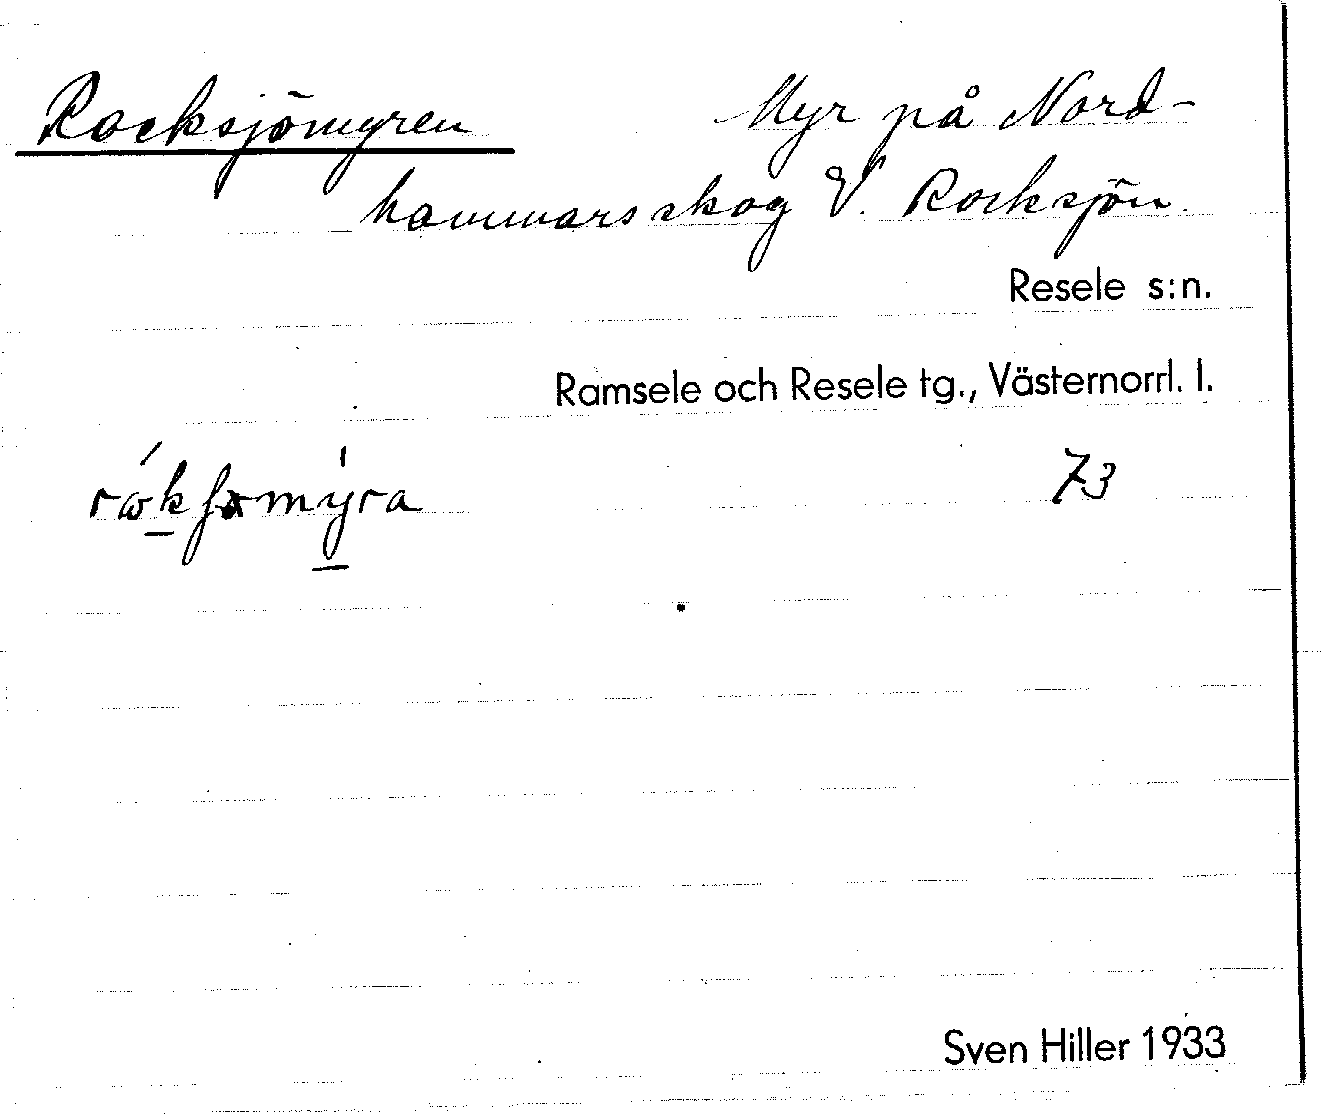 Rocksjömyren Myr på Nord-
hammars skog V. Rocksjön.
Resele s:n.
Ramsele och Resele tg., Västernorrl. l.
73
Sven Hiller 1933